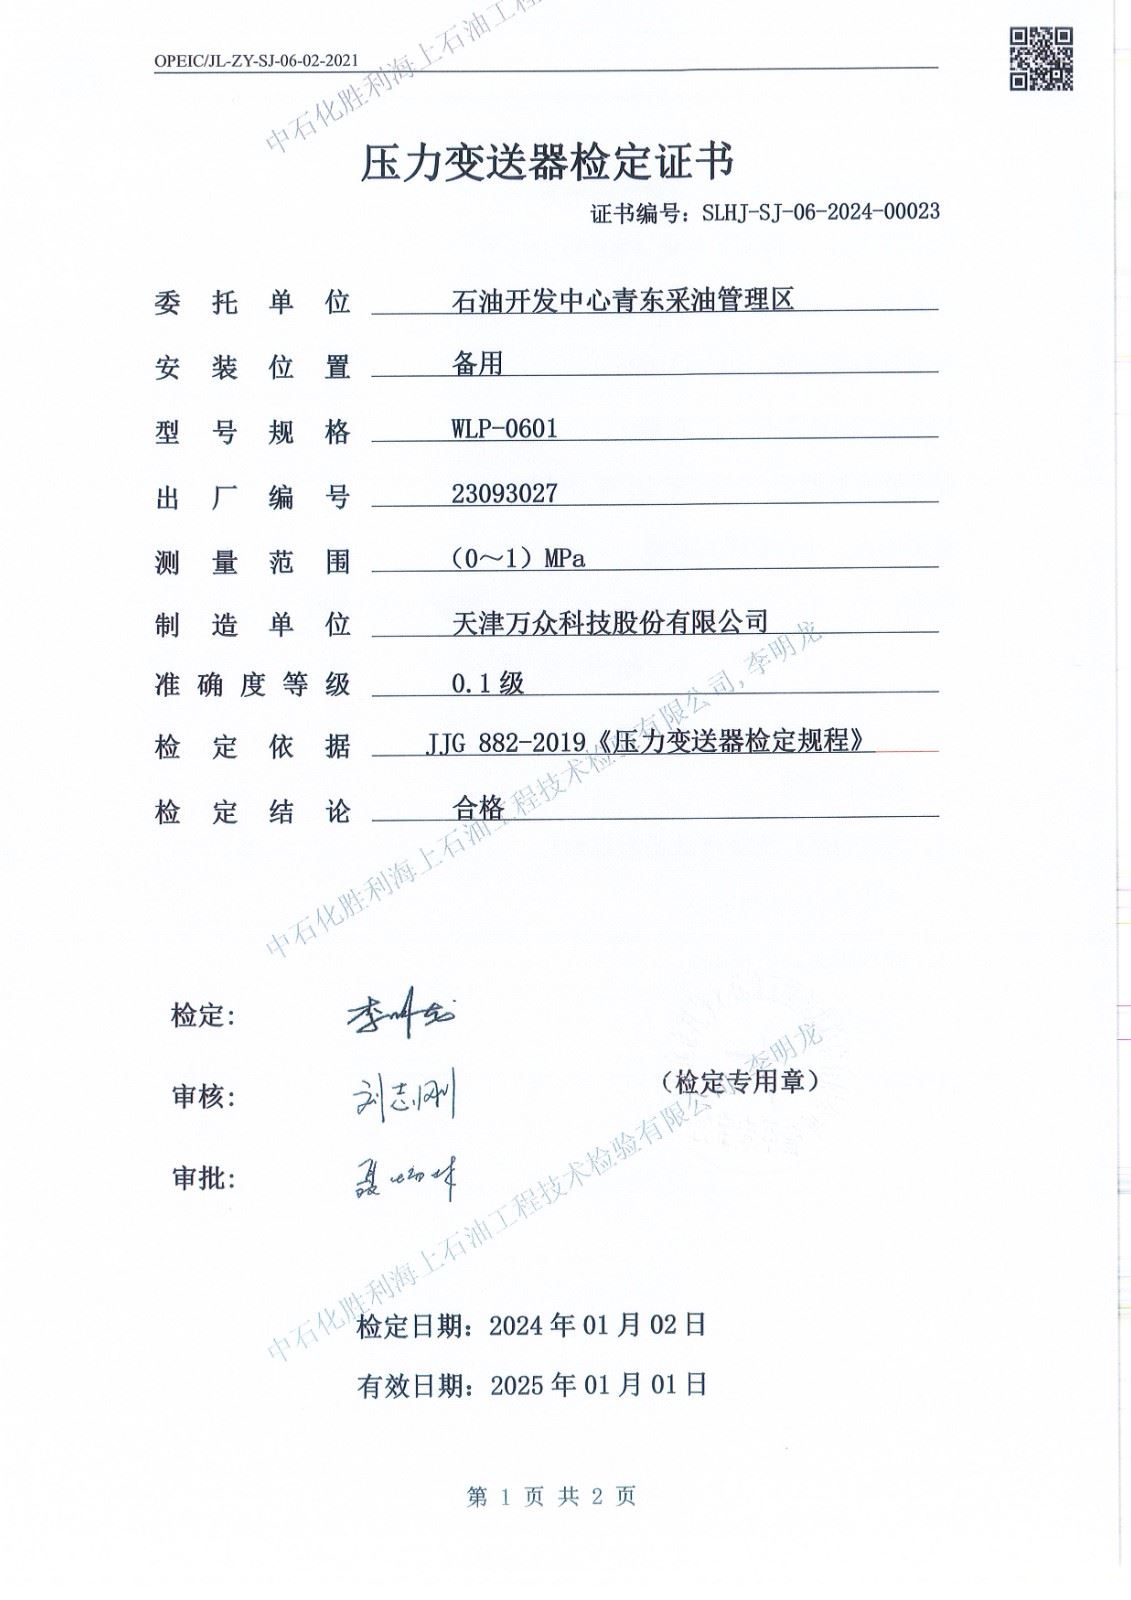 OPEIC/JL-ZY-SJ-06-02-2021
中石化胜利海上石油工程
压力变送器检定证书
证书编号：SLHJ-SJ-06-2024-00023
委托单位 石油开发中心青东采油管理区
安装位置 备用
型号规格 WLP-0601
出厂编号 23093027
测量范围 （0～1）MPa
制造单位 天津万众科技股份有限公司
准确度等级 0.1级
检定依据 JJG 882-2019《压力变送器检定规程》
检定结论 合格
中石化胜利海上石油工程技术检验有限公司,李明龙
检定： 李明龙
审核： 刘志刚
（检定专用章）
审批：
中石化胜利海上石油工程技术检验有限公司,李明龙
检定日期：2024年01月02日
有效日期：2025年01月01日
第 1 页 共 2 页